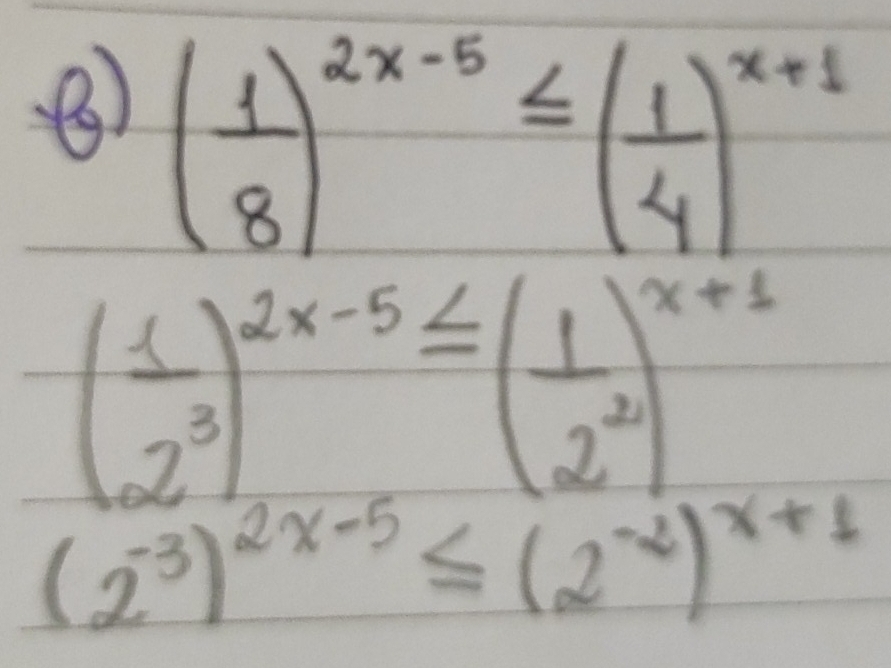 b) (1/8)^(2x-5) ≤ (1/4)^(x+1)
(1/2^3)^(2x-5) ≤ (1/2^2)^(x+1)
(2^-3)^(2x-5) ≤ (2^-2)^(x+1)